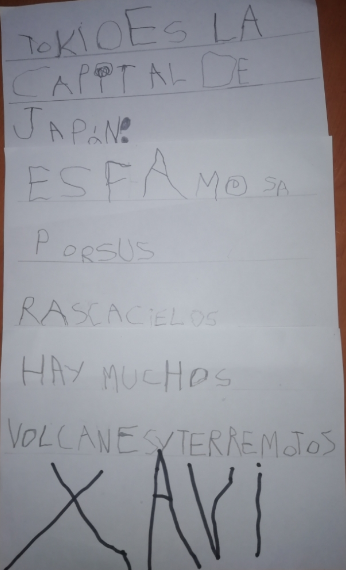 TOKIO ES LA
CAPITAL DE
JAPÓN:
ES FAMOSA
POR SUS
RASCACiELOS
HAY MUCHOS
VOLCANES Y TERREMOTOS
XAVi